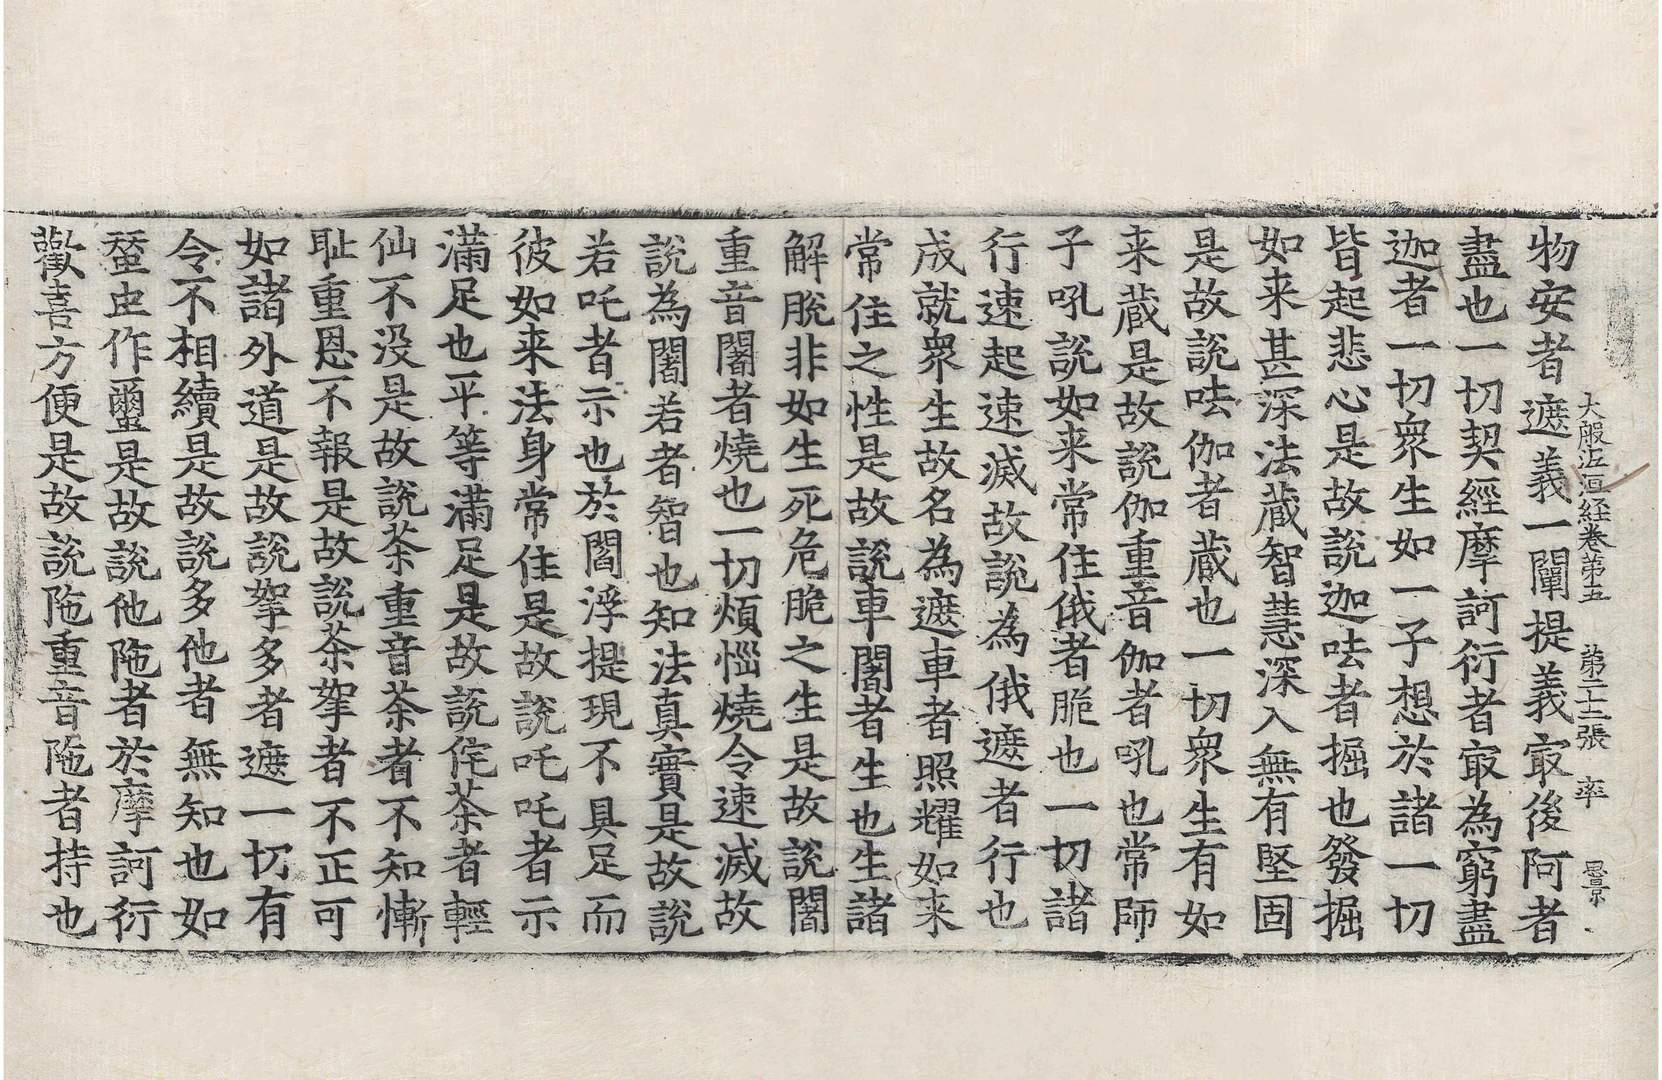 大般泥洹経卷第五 第二十二張 率 思景
物安者遮義一闡提義㝡後阿者
盡也一切契經摩訶衍者㝡為窮盡
迦者一切衆生如一子想於諸一切
皆起悲心是故說迦呿者掘也發掘
如来甚深法蔵智慧深入無有堅固
是故說呿伽者蔵也一切衆生有如
来蔵是故說伽重音伽者吼也常師
子吼說如来常住俄者脆也一切諸
行速起速滅故說為俄遮者行也
成就衆生故名為遮車者照耀如来
常住之性是故說車闍者生也生諸
解脫非如生死危脆之生是故說闍
重音闍者燒也一切煩惱燒令速滅故
說為闍若者智也知法真實是故說
若吒者示也於閻浮提現不具足而
彼如来法身常住是故說吒吒者示
滿足也平等滿足是故說侘荼者輕
仙不没是故說荼重音荼者不知慚
耻重恩不報是故說荼拏者不正可
如諸外道是故說拏多者遮一切有
令不相續是故說多他者無知也如
蚕虫作壐是故說他陁者於摩訶衍
歡喜方便是故說陁重音陁者持也